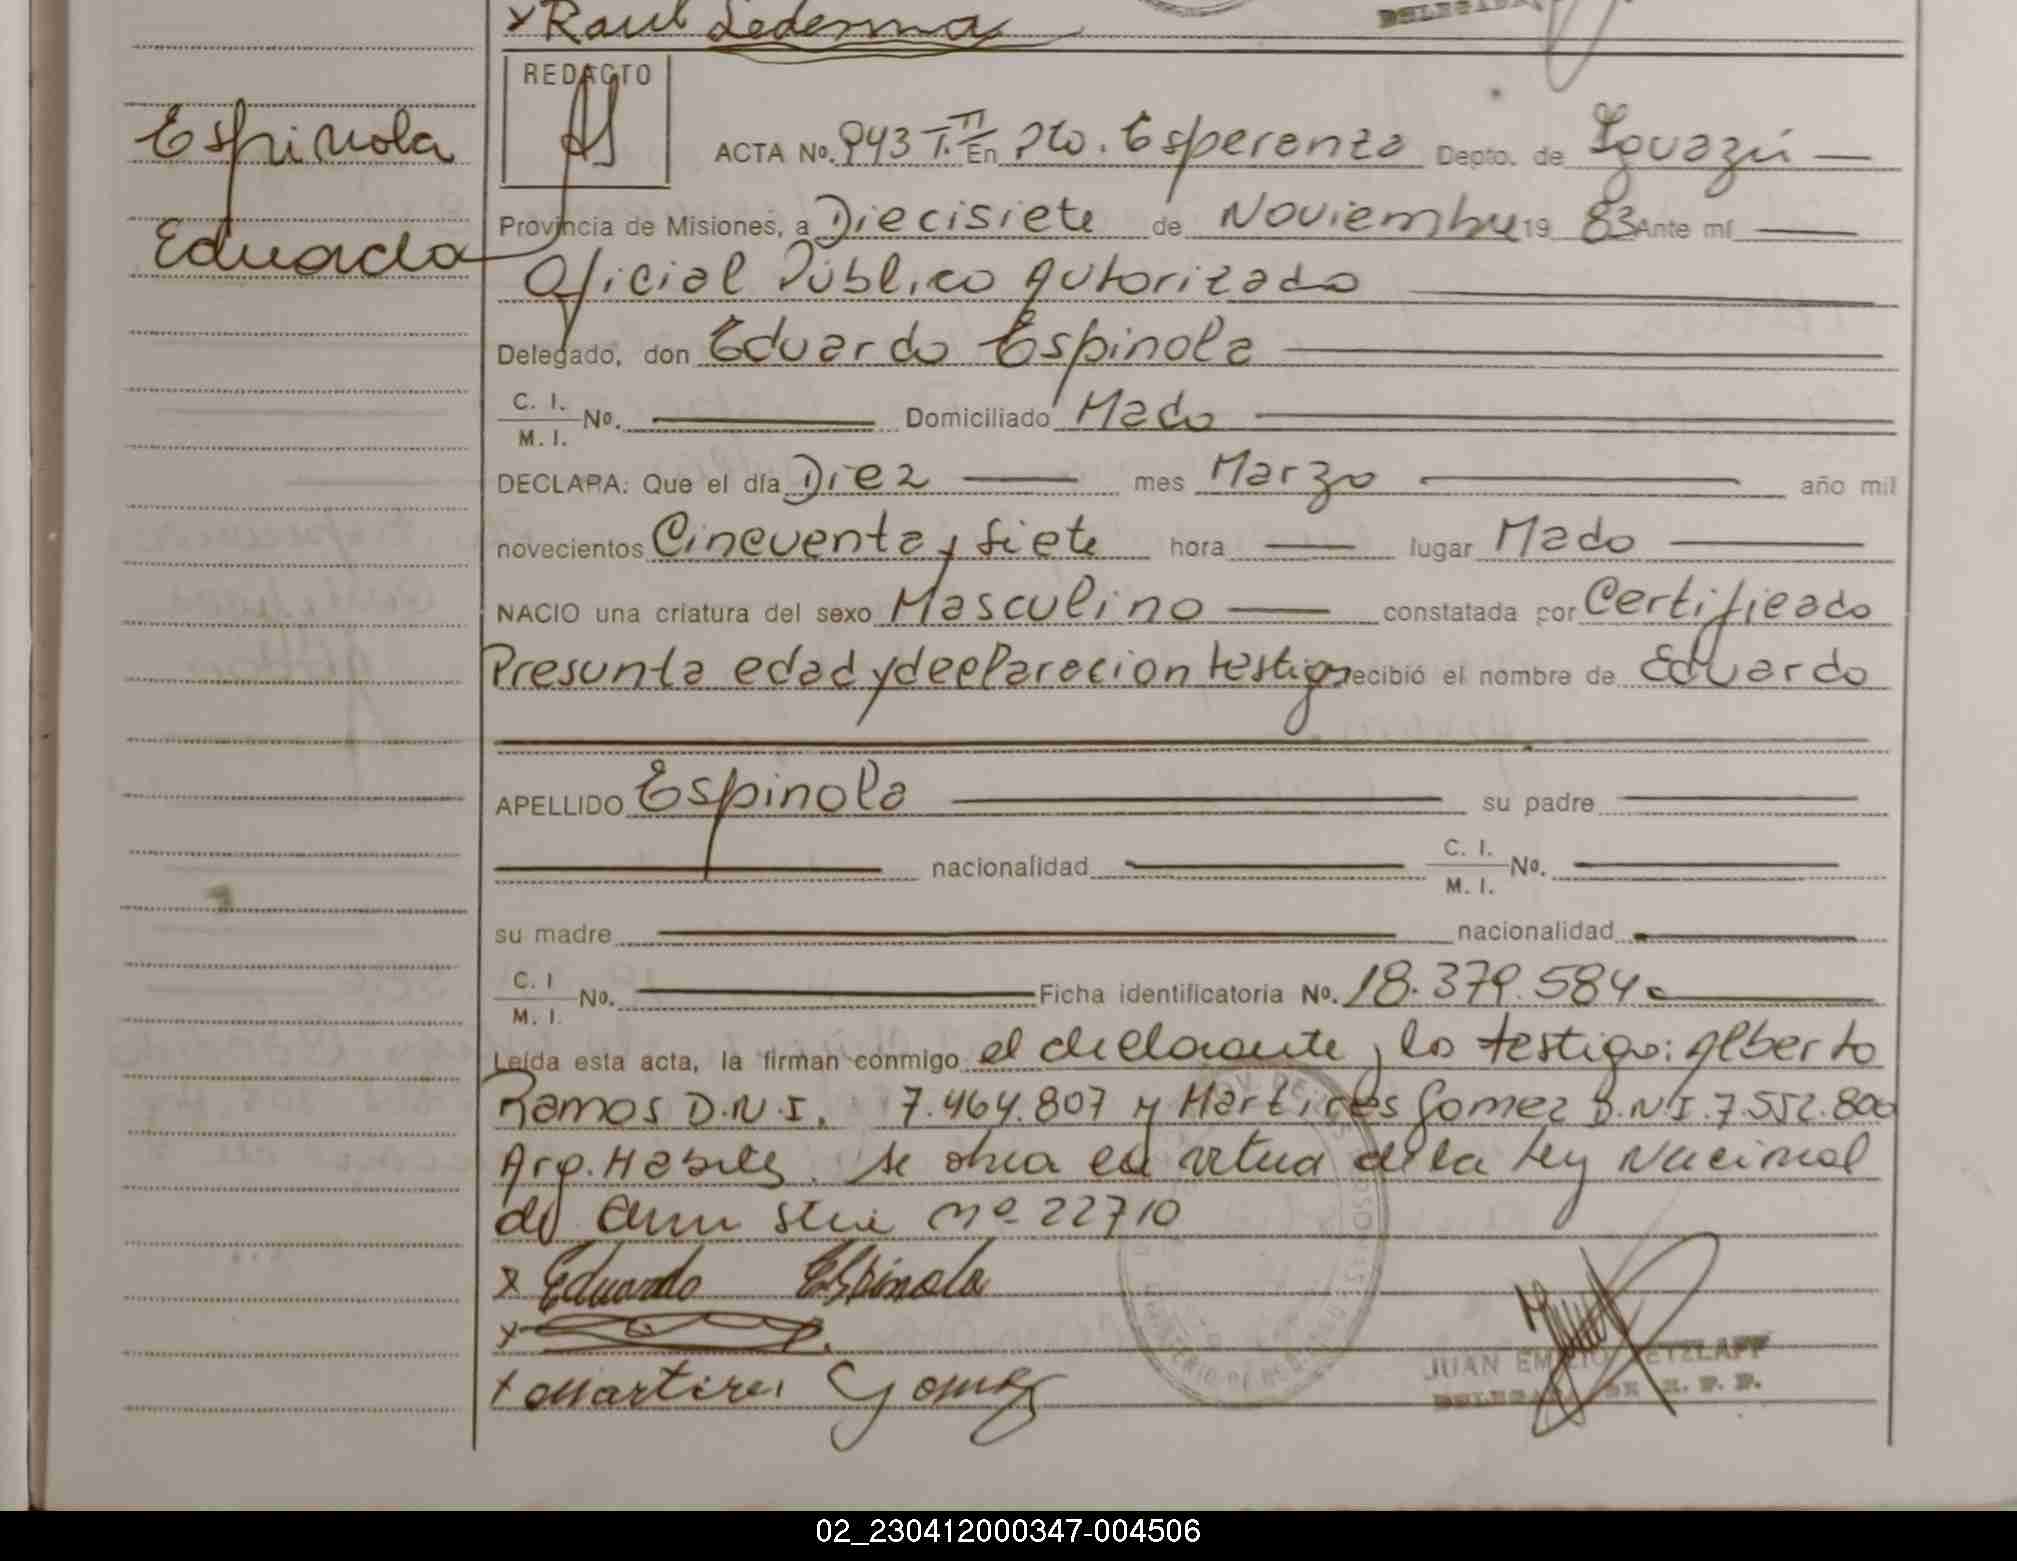 x Raul Ledesma
REDACTO
Espinola
Eduardo
ACTA No. 943 T. II En Pto. Esperanza Depto. de Iguazú
Provincia de Misiones, a Diecisiete de Noviembre 19 83 Ante mí
Oficial Público Autorizado
Delegado, don Eduardo Espinola
C. I. M. I. No. Domiciliado Mado
DECLARA: Que el día Diez mes Marzo año mil
novecientos Cincuenta y siete hora lugar Mado
NACIO una criatura del sexo Masculino constatada por Certificado
Presunta edad y declaracion testigo recibió el nombre de Eduardo
APELLIDO Espinola su padre
nacionalidad C. I. M. I. No.
su madre nacionalidad
C. I M. I. No. Ficha identificatoria No. 18.379.584
Leída esta acta, la firman conmigo el declarante, lo testigo: Alberto
Ramos D.N.I. 7.464.807 y Martires Gomez D.N.I. 7.552.800
Arg. Habiles. se obra en virtud de la ley Nacional
de Amnistia nº 22710
x Eduardo Espinola
x
x Martires Gomez
JUAN EMILIO RETZLAFF
DELEGADO DE R. P. P.
02_230412000347-004506